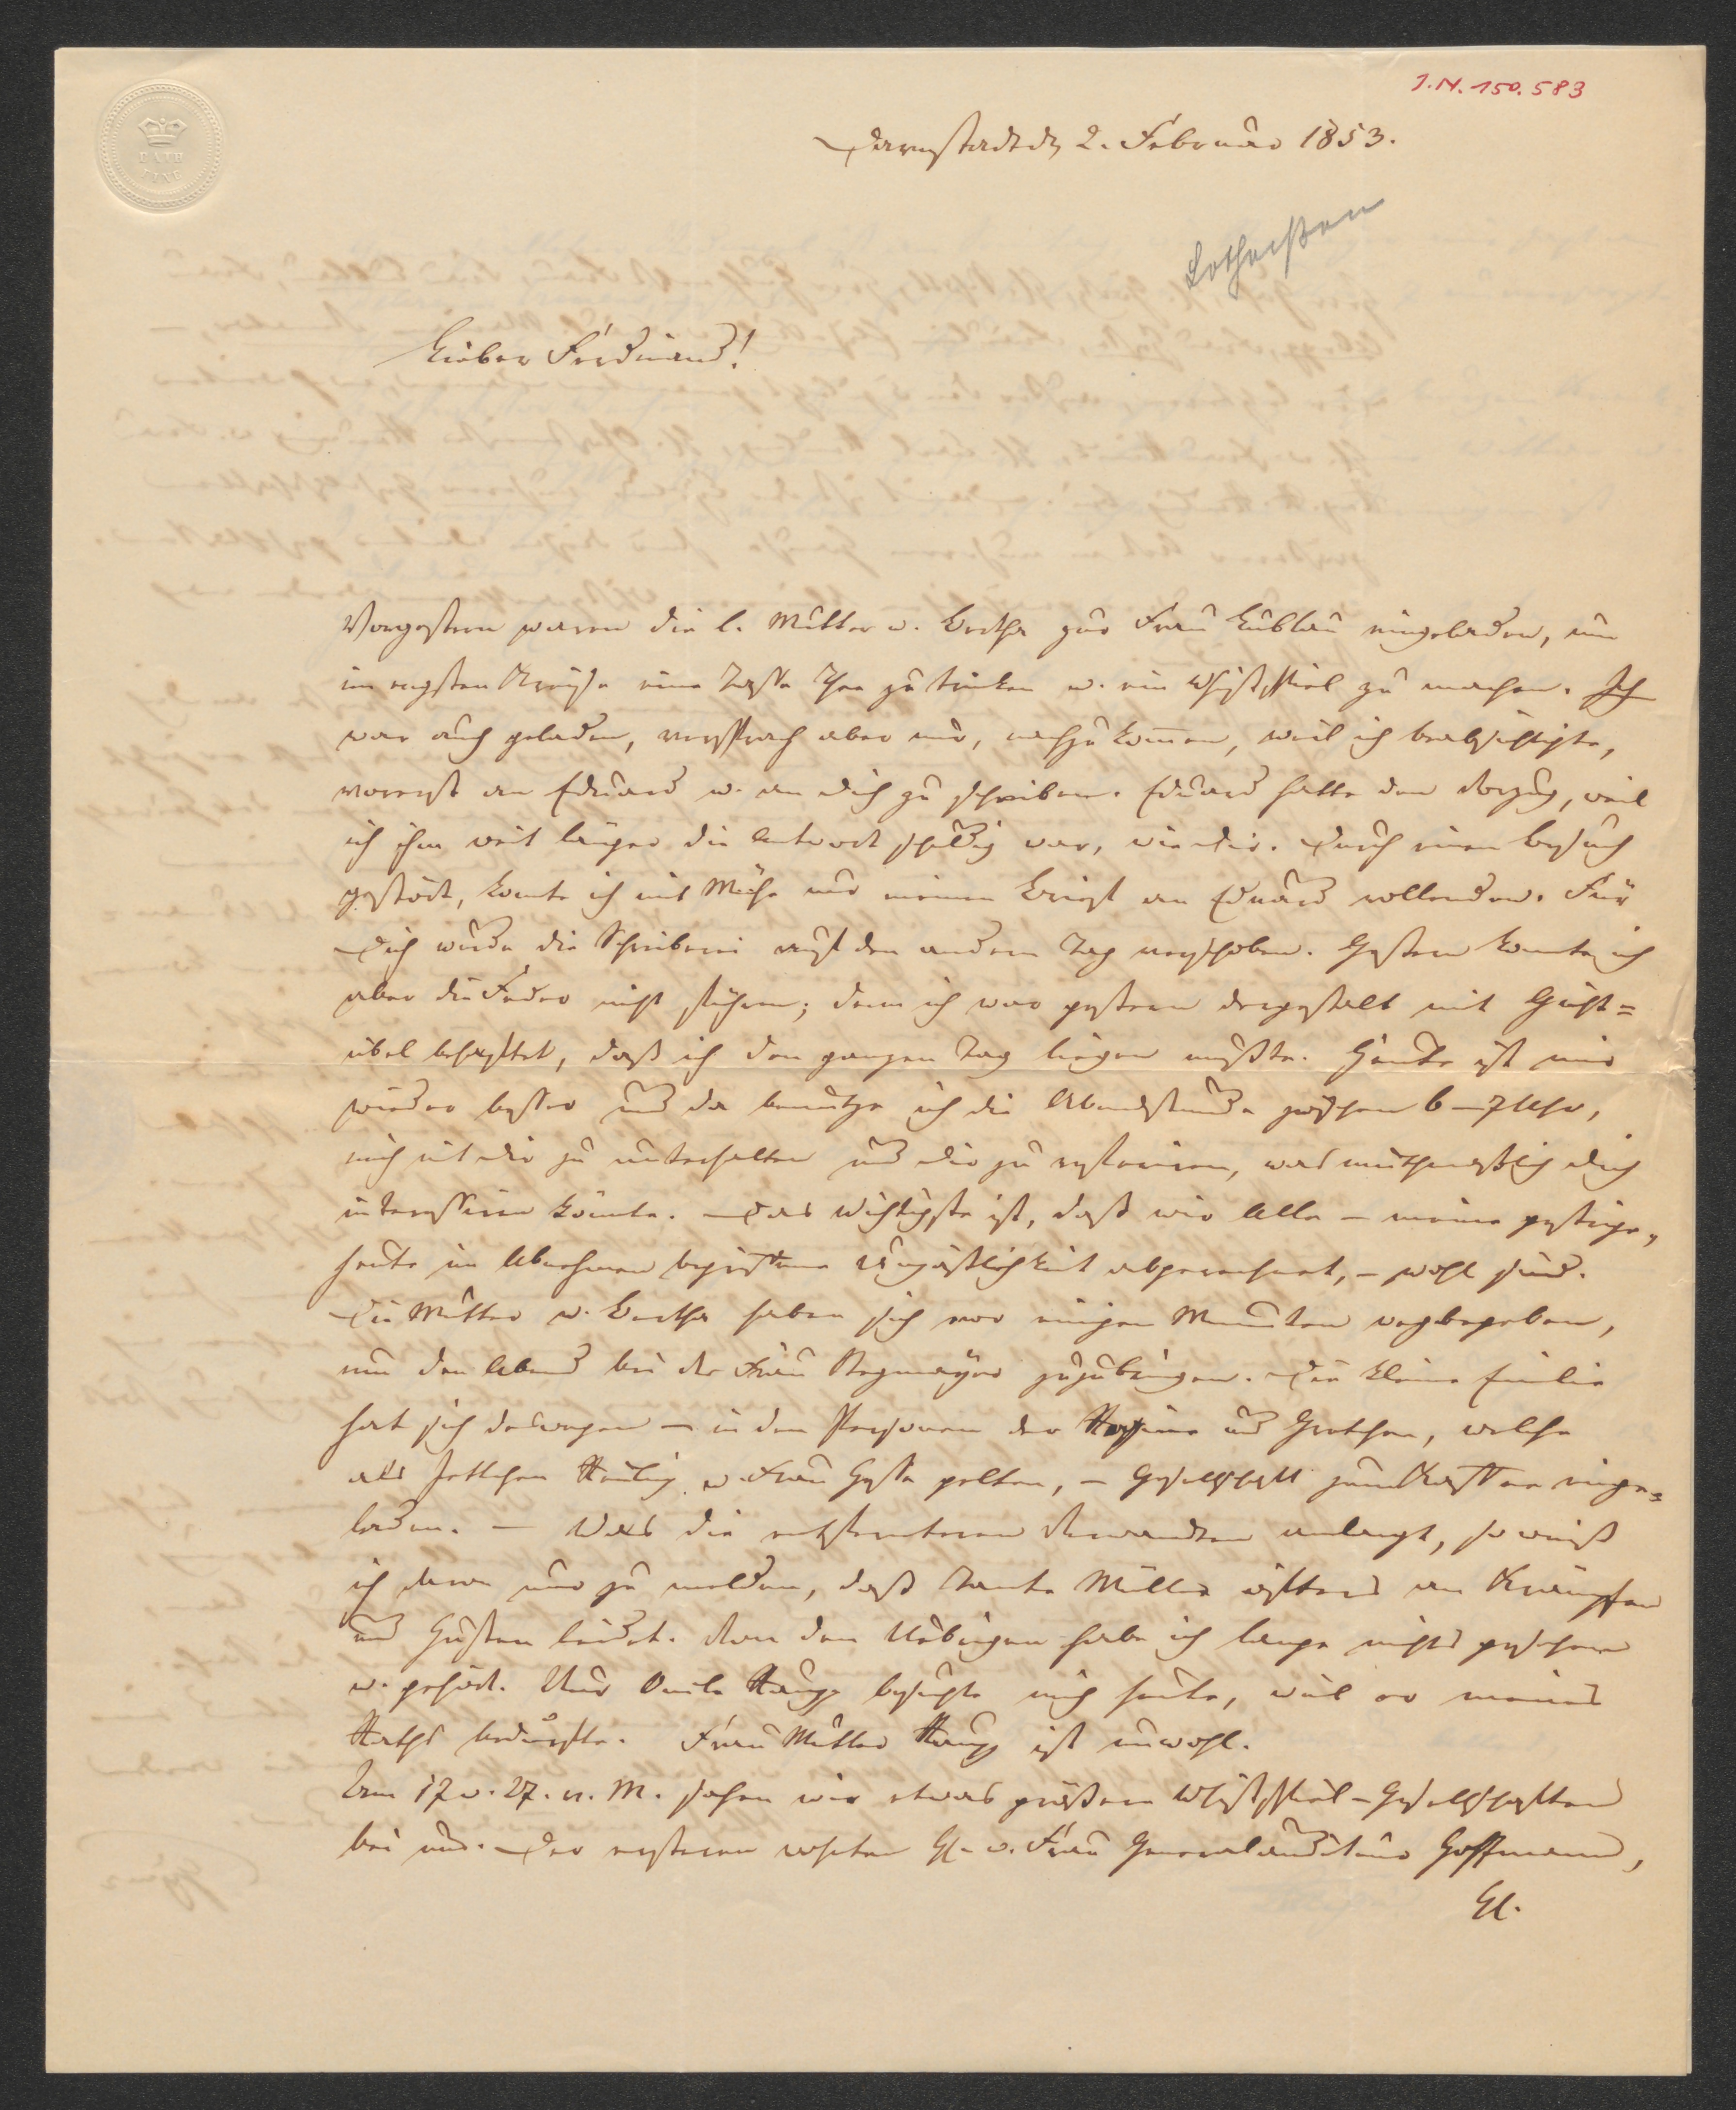 J.N. 150.583
BATH
Darmstadt d. 2. Februar 1853.
Lotheißen
Lieber Ferdinand!
Vorgestern waren die l. Mutter u. Bertha zur Frau Lublau eingeladen, um
im engsten Kreise eine Tasse Thee zu trinken u. ein Whistspiel zu machen. Ich
war auch geladen, versprach aber nur, nachzukommen, weil ich beabsichtigte,
vorerst an Eduard u. an dich zu schreiben. Eduard hatte den Vorzug, weil
ich ihm weit länger die Antwort schuldig war, wie dir. Durch einen Besuch
gestört, konnte ich mit Mühe nur meinen Brief an Eduard vollenden. Für
Dich wurde die Schreiberei auf den andern Tag verschoben. Gestern konnte ich
aber die Feder nicht führen; denn ich war gestern dergestalt mit Gicht=
übel behaftet, daß ich den ganzen Tag liegen mußte. Heute ist mir
wieder besser und da benutze ich die Abendstunde zwischen 6–7 Uhr,
mich mit dir zu unterhalten und dir zu referiren, was muthmaßlich dich
interessiren könnte. – Das Wichtigste ist, daß wir Alle – meine gestrige,
heute im Abnehmen begriffene Unpäßlichkeit abgerechnet, – wohl sind.
Die Mutter u. Bertha haben sich vor einigen Minuten wegbegeben,
um den Abend bei der Frau Stegmayer zuzubringen. Die kleine Emilie
hat sich deswegen – in den Personen der und Grethen, welche
als u. Frau Hesse gelten, – Gesellschaft zum Kaffee einge=
laden. – Was die entfernteren Verwandten anlangt, so weiß
ich davon nur zu melden, daß Tante Müller öfters an Krämpfen
und Husten leidet. Von den Uebrigen habe ich lange nichts gesehen
u. gehört. Nur Onkle Haupp besuchte mich heute, weil er meines
Raths bedurfte. Frau Mutter Haupp ist unwohl.
Am 17 u. 27. v. M. sahen wir etwas größere Whistspiel-Gesellschaften
bei uns. Der ersteren wohnten H. u. Frau Generalauditeur Hoffmann,
H.